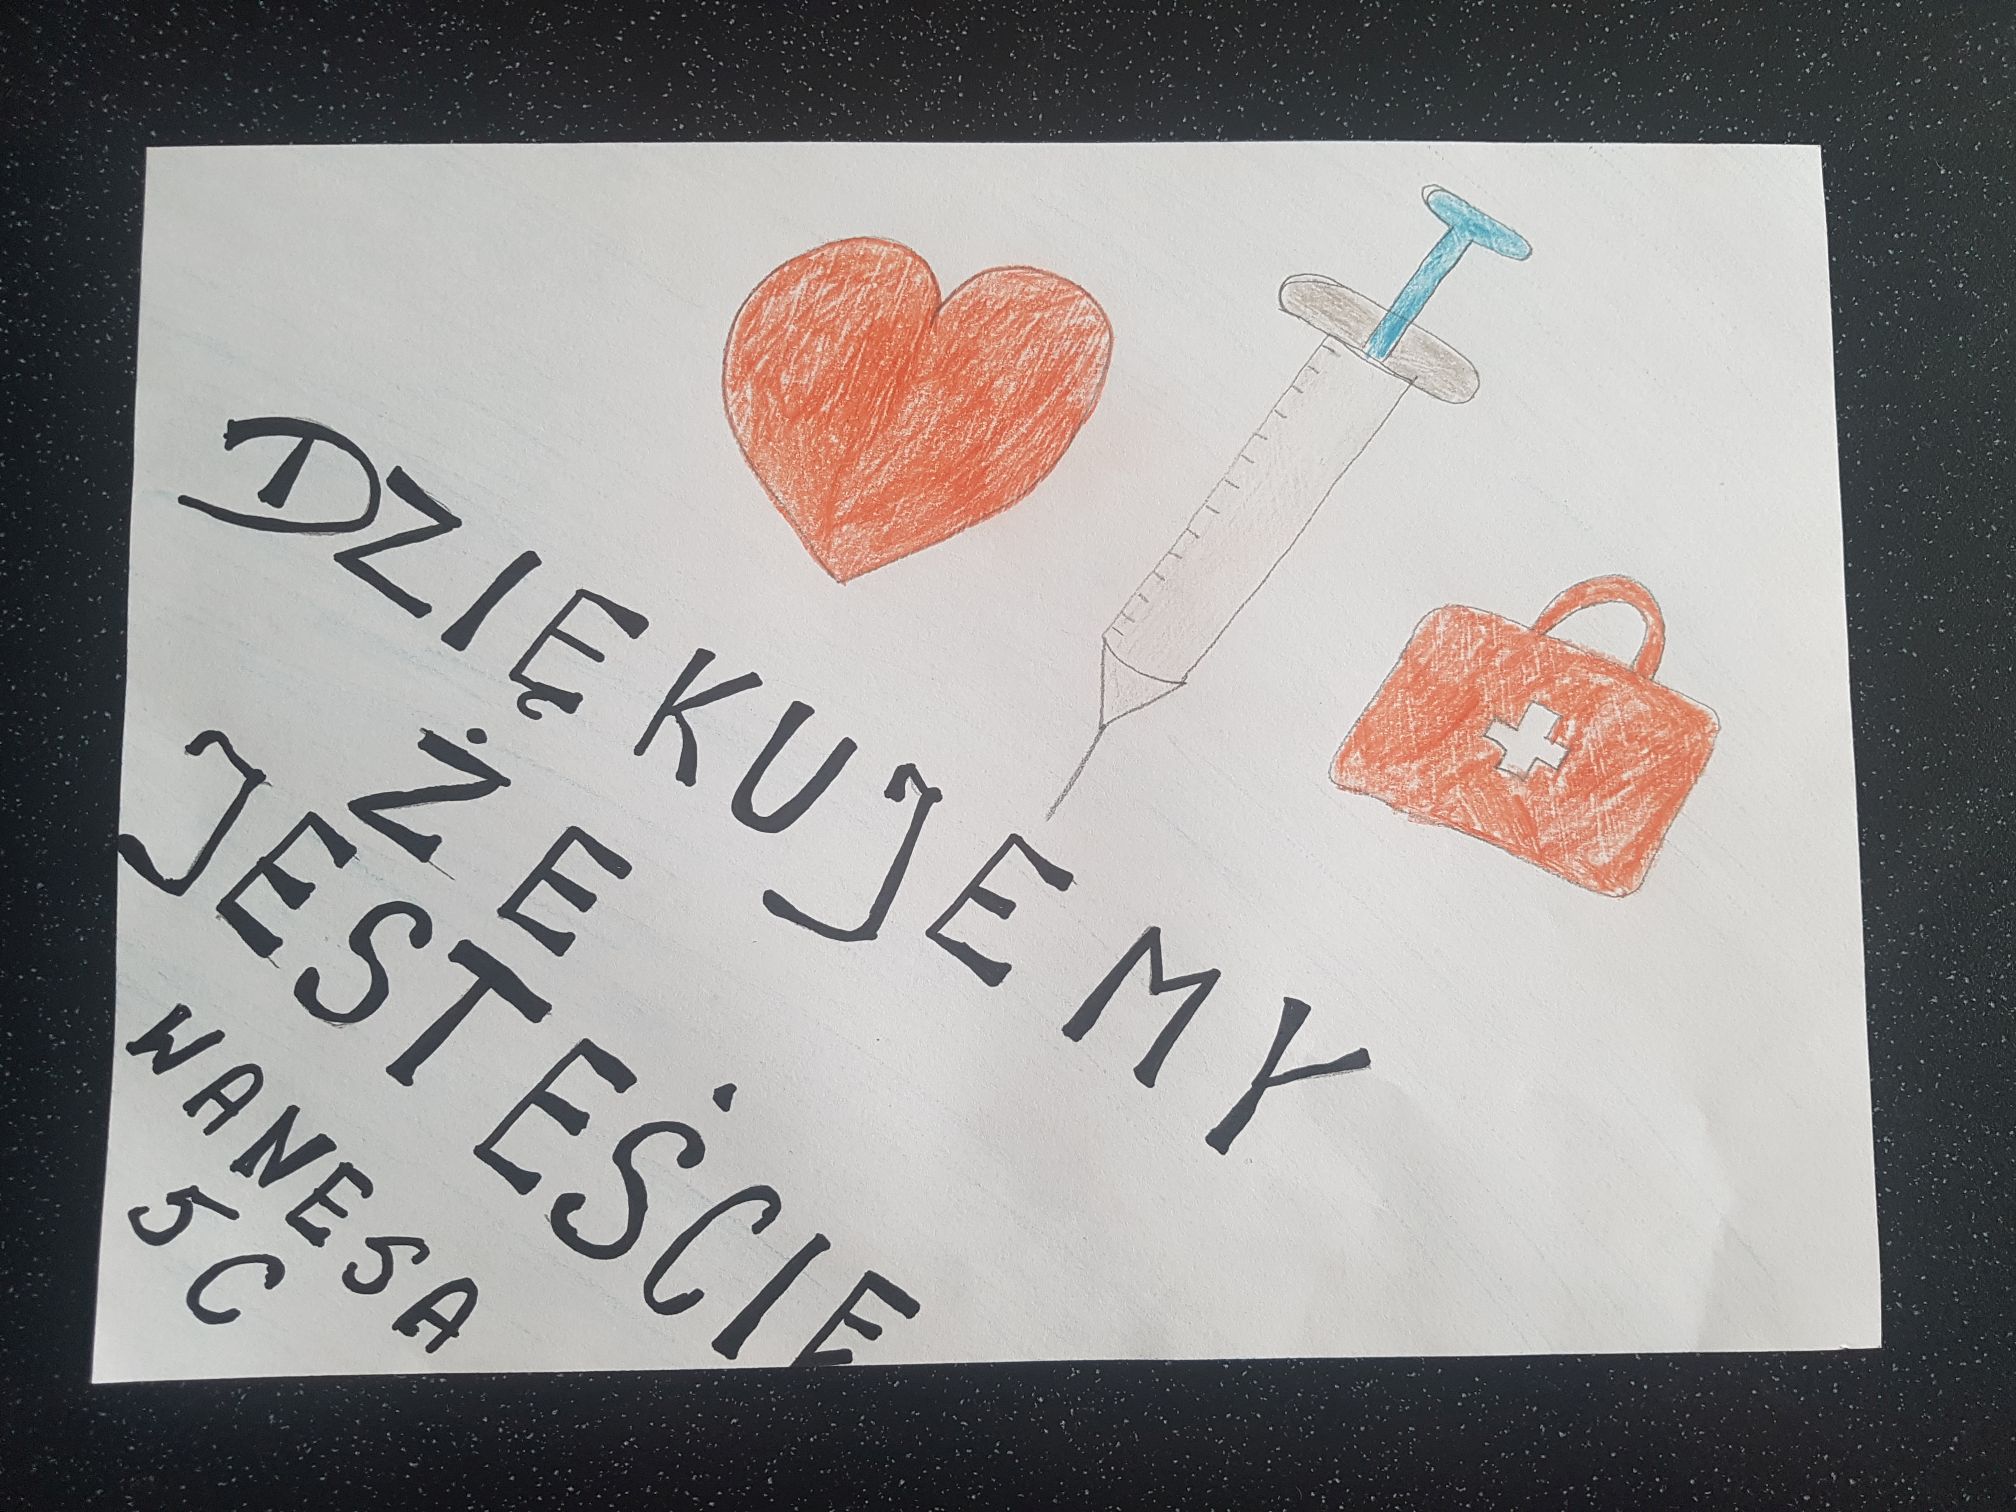 DZIĘKUJEMY
ŻE
JESTEŚCIE
WANESA
5C